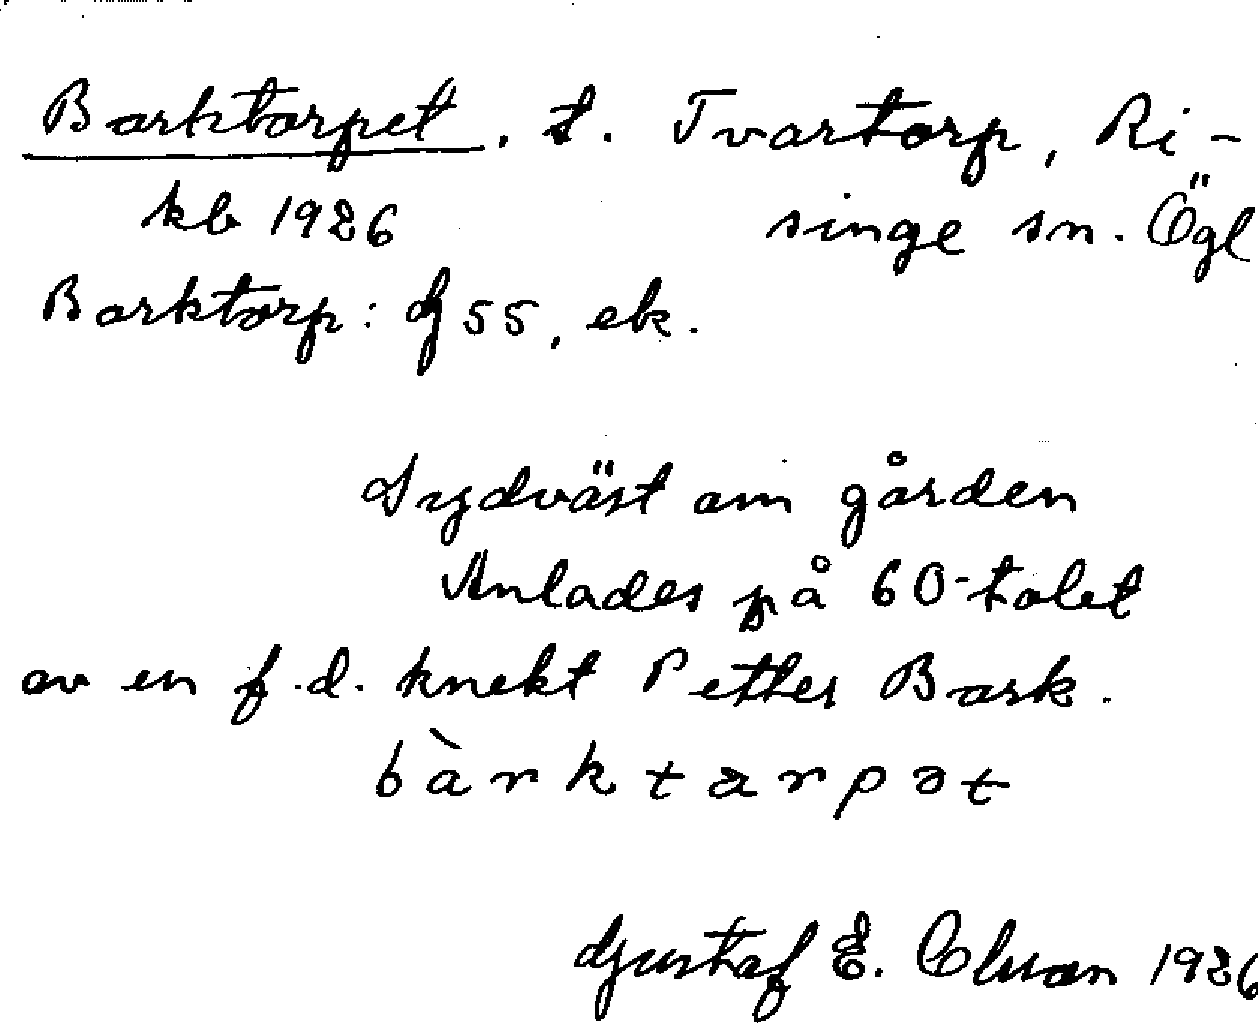 Barktorpet, t. Tvartorp, Ri-
kb 1926 singe sn. Ögl
Barktorp: G 55, ek.
Sydväst om gården
Anlades på 60-talet
av en f.d. knekt Petter Bark.
bàrktarpət
Gustaf E. Clman 1926